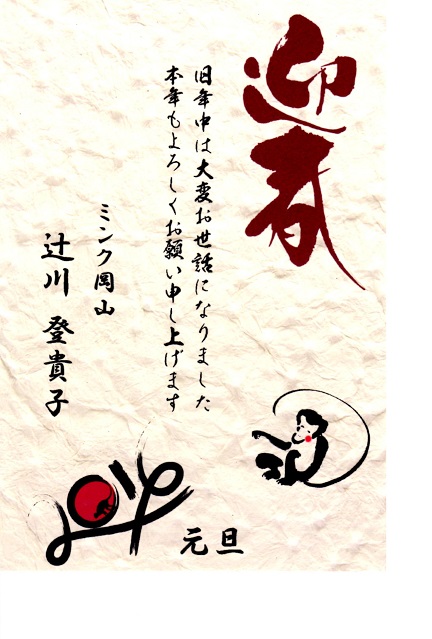 迎春
旧年中は大変お世話になりました
本年もよろしくお願い申し上げます
ミンク岡山
辻川 登貴子
元旦